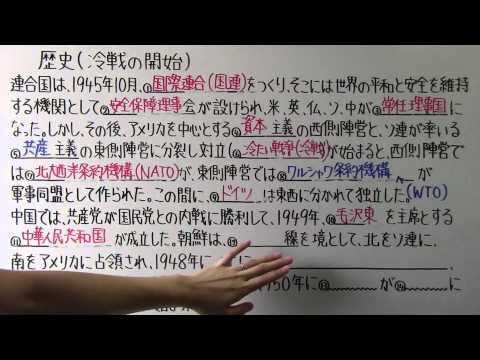 歴史(冷戦の開始)
連合国は、1945年10月、国際連合(国連)をつくり、そこには世界の平和と安全を維持
する機関として安全保障理事会が設けられ、米、英、仏、ソ、中が常任理事国に
なった。しかし、その後、アメリカを中心とする資本主義の西側陣営と、ソ連が率いる
共産主義の東側陣営に分裂し対立(冷たい戦争(冷戦))が始まると、西側陣営で
は北大西洋条約機構(NATO)が、東側陣営ではワルシャワ条約機構が
軍事同盟として作られた。この間に、ドイツは東西に分かれて独立した。(WTO)
中国では、共産党が国民党との内戦に勝利して、1949年、毛沢東を主席とする
中華人民共和国が成立した。朝鮮は、線を境として、北をソ連に、
南をアメリカに占領され、1948年に
950年に⑬が⑭に